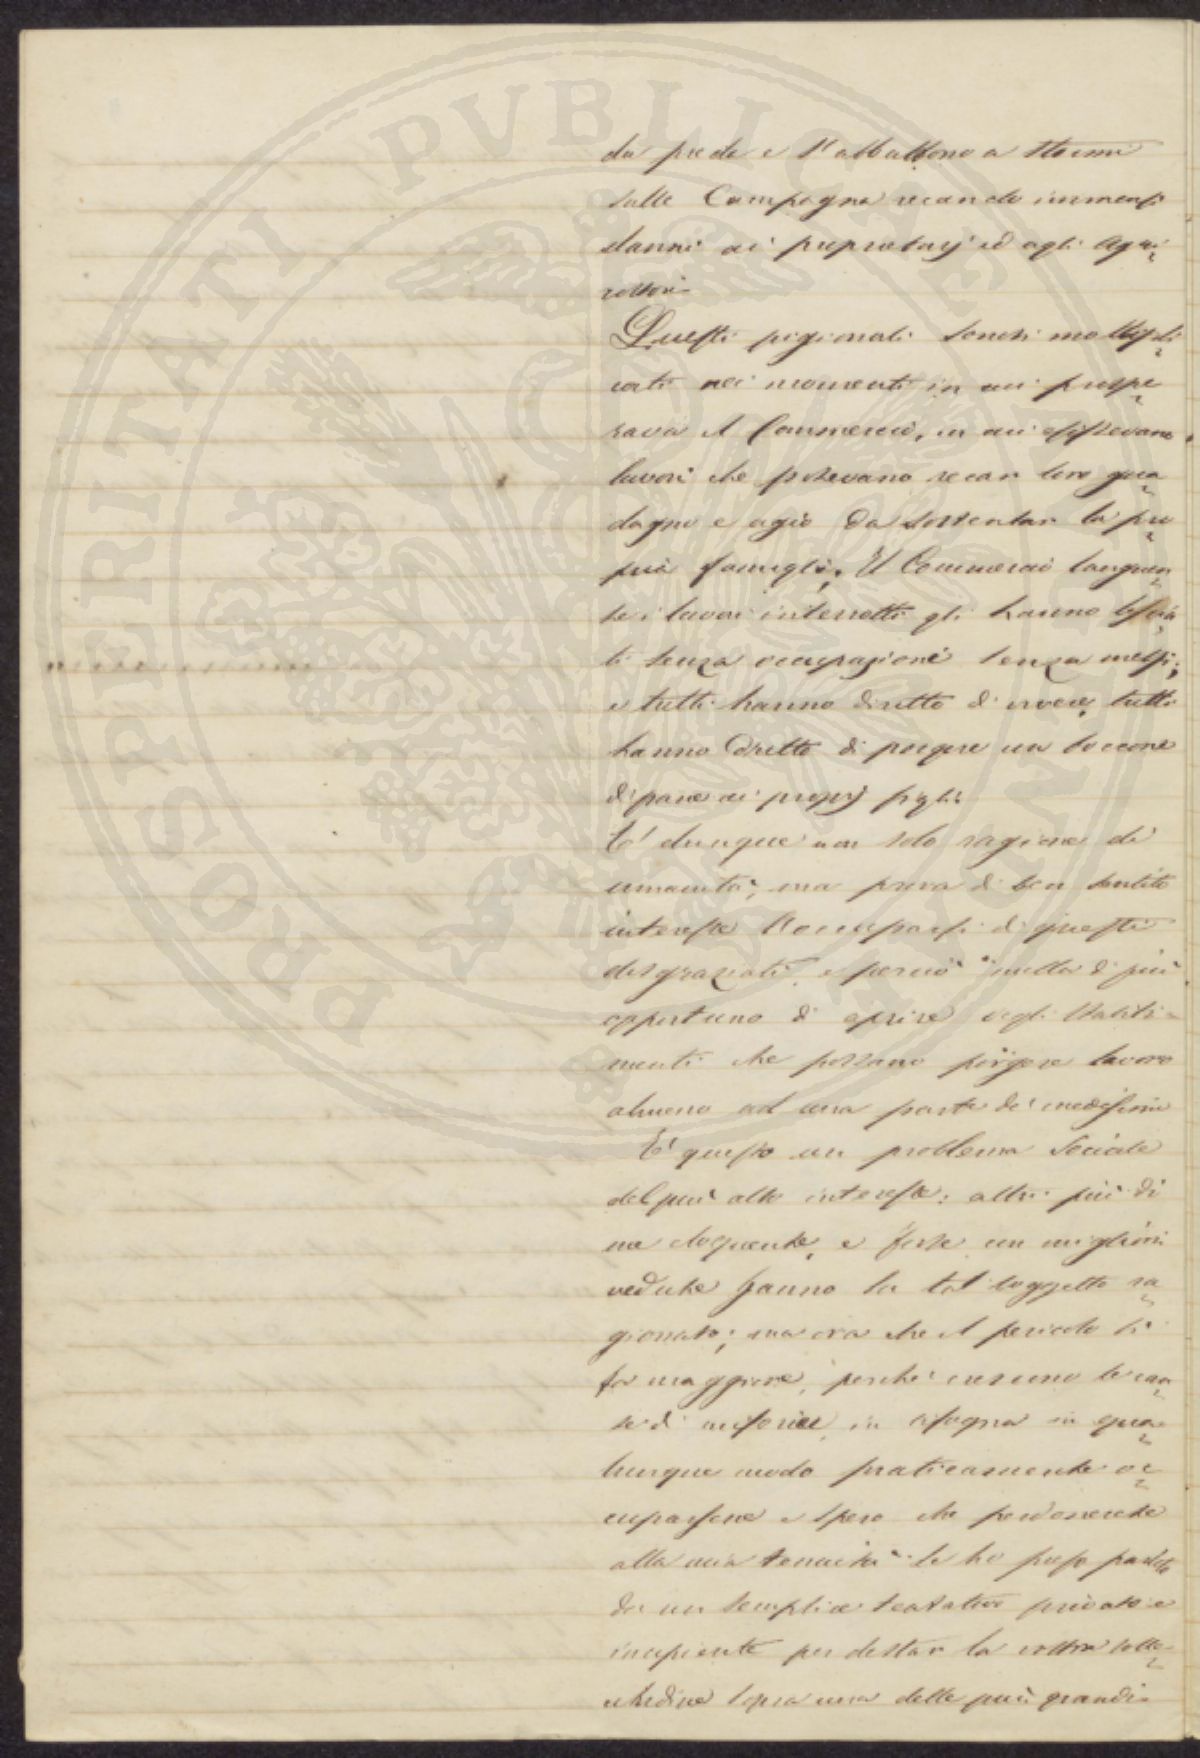 PROSPERITATI PVBLICAE AVGENDAE
da prede e s'abbattono a stormi
sulle Campagna recando immensi
danni ai proprietarj ed agli Agri-
coltori-
Questi pigionali sonosi moltipli-
cati nei momenti in cui prospe-
rava il Commercio, in cui esistevano
lavori che potevano recar loro gua-
dagno e agio da sostentar la pro-
pria famiglia. Il Commercio languen-
te i lavori interrotti gli hanno lascia-
ti senza occupazione senza mezzi;
e tutti hanno diritto di vivere, tutti
hanno dritto di porgere un boccone
di pane ai proprj figli.
E' dunque non solo ragione di
umanità, ma prova di ben sentito
interesse l'occuparsi di questi
disgraziati, e perciò nulla di più
opportuno di aprire degli Stabili-
menti che possano porgere lavoro
almeno ad una parte dei medesimi
E' questo un problema Sociale
del più alto interesse: altri più di
me eloquente, e forse con migliori
vedute hanno su tal soggetto ra-
gionato; ma ora che il pericolo si
fa maggiore, perchè crescono le cau-
se di miserie, bisogna in qua-
lunque modo praticamente oc-
cuparsene e spero che perdonerete
alla mia tenuità se ho preso partito
da un semplice tentativo privato e
incipiente per destar la vostra solle-
citudine sopra una delle più grandi